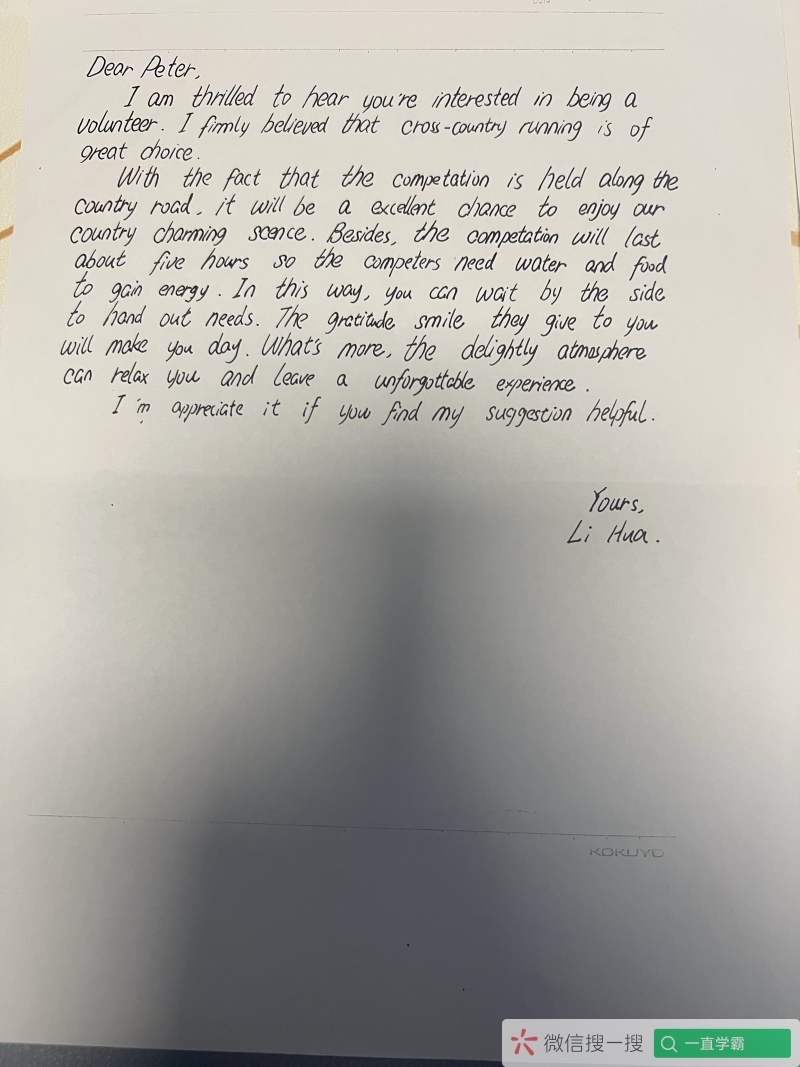 Dear Peter,
I am thrilled to hear you're interested in being a
volunteer. I firmly believed that cross-country running is of
great choice.
With the fact that the competation is held along the
country road, it will be a excellent chance to enjoy our
country charming scence. Besides, the competation will last
about five hours so the competers need water and food
to gain energy. In this way, you can wait by the side
to hand out needs. The gratitude smile they give to you
will make you day. What's more, the delightly atmosphere
can relax you and leave a unforgottable experience.
I'm appreciate it if you find my suggestion helpful.
Yours,
Li Hua.
KOKUYO
微信搜一搜
一直学霸